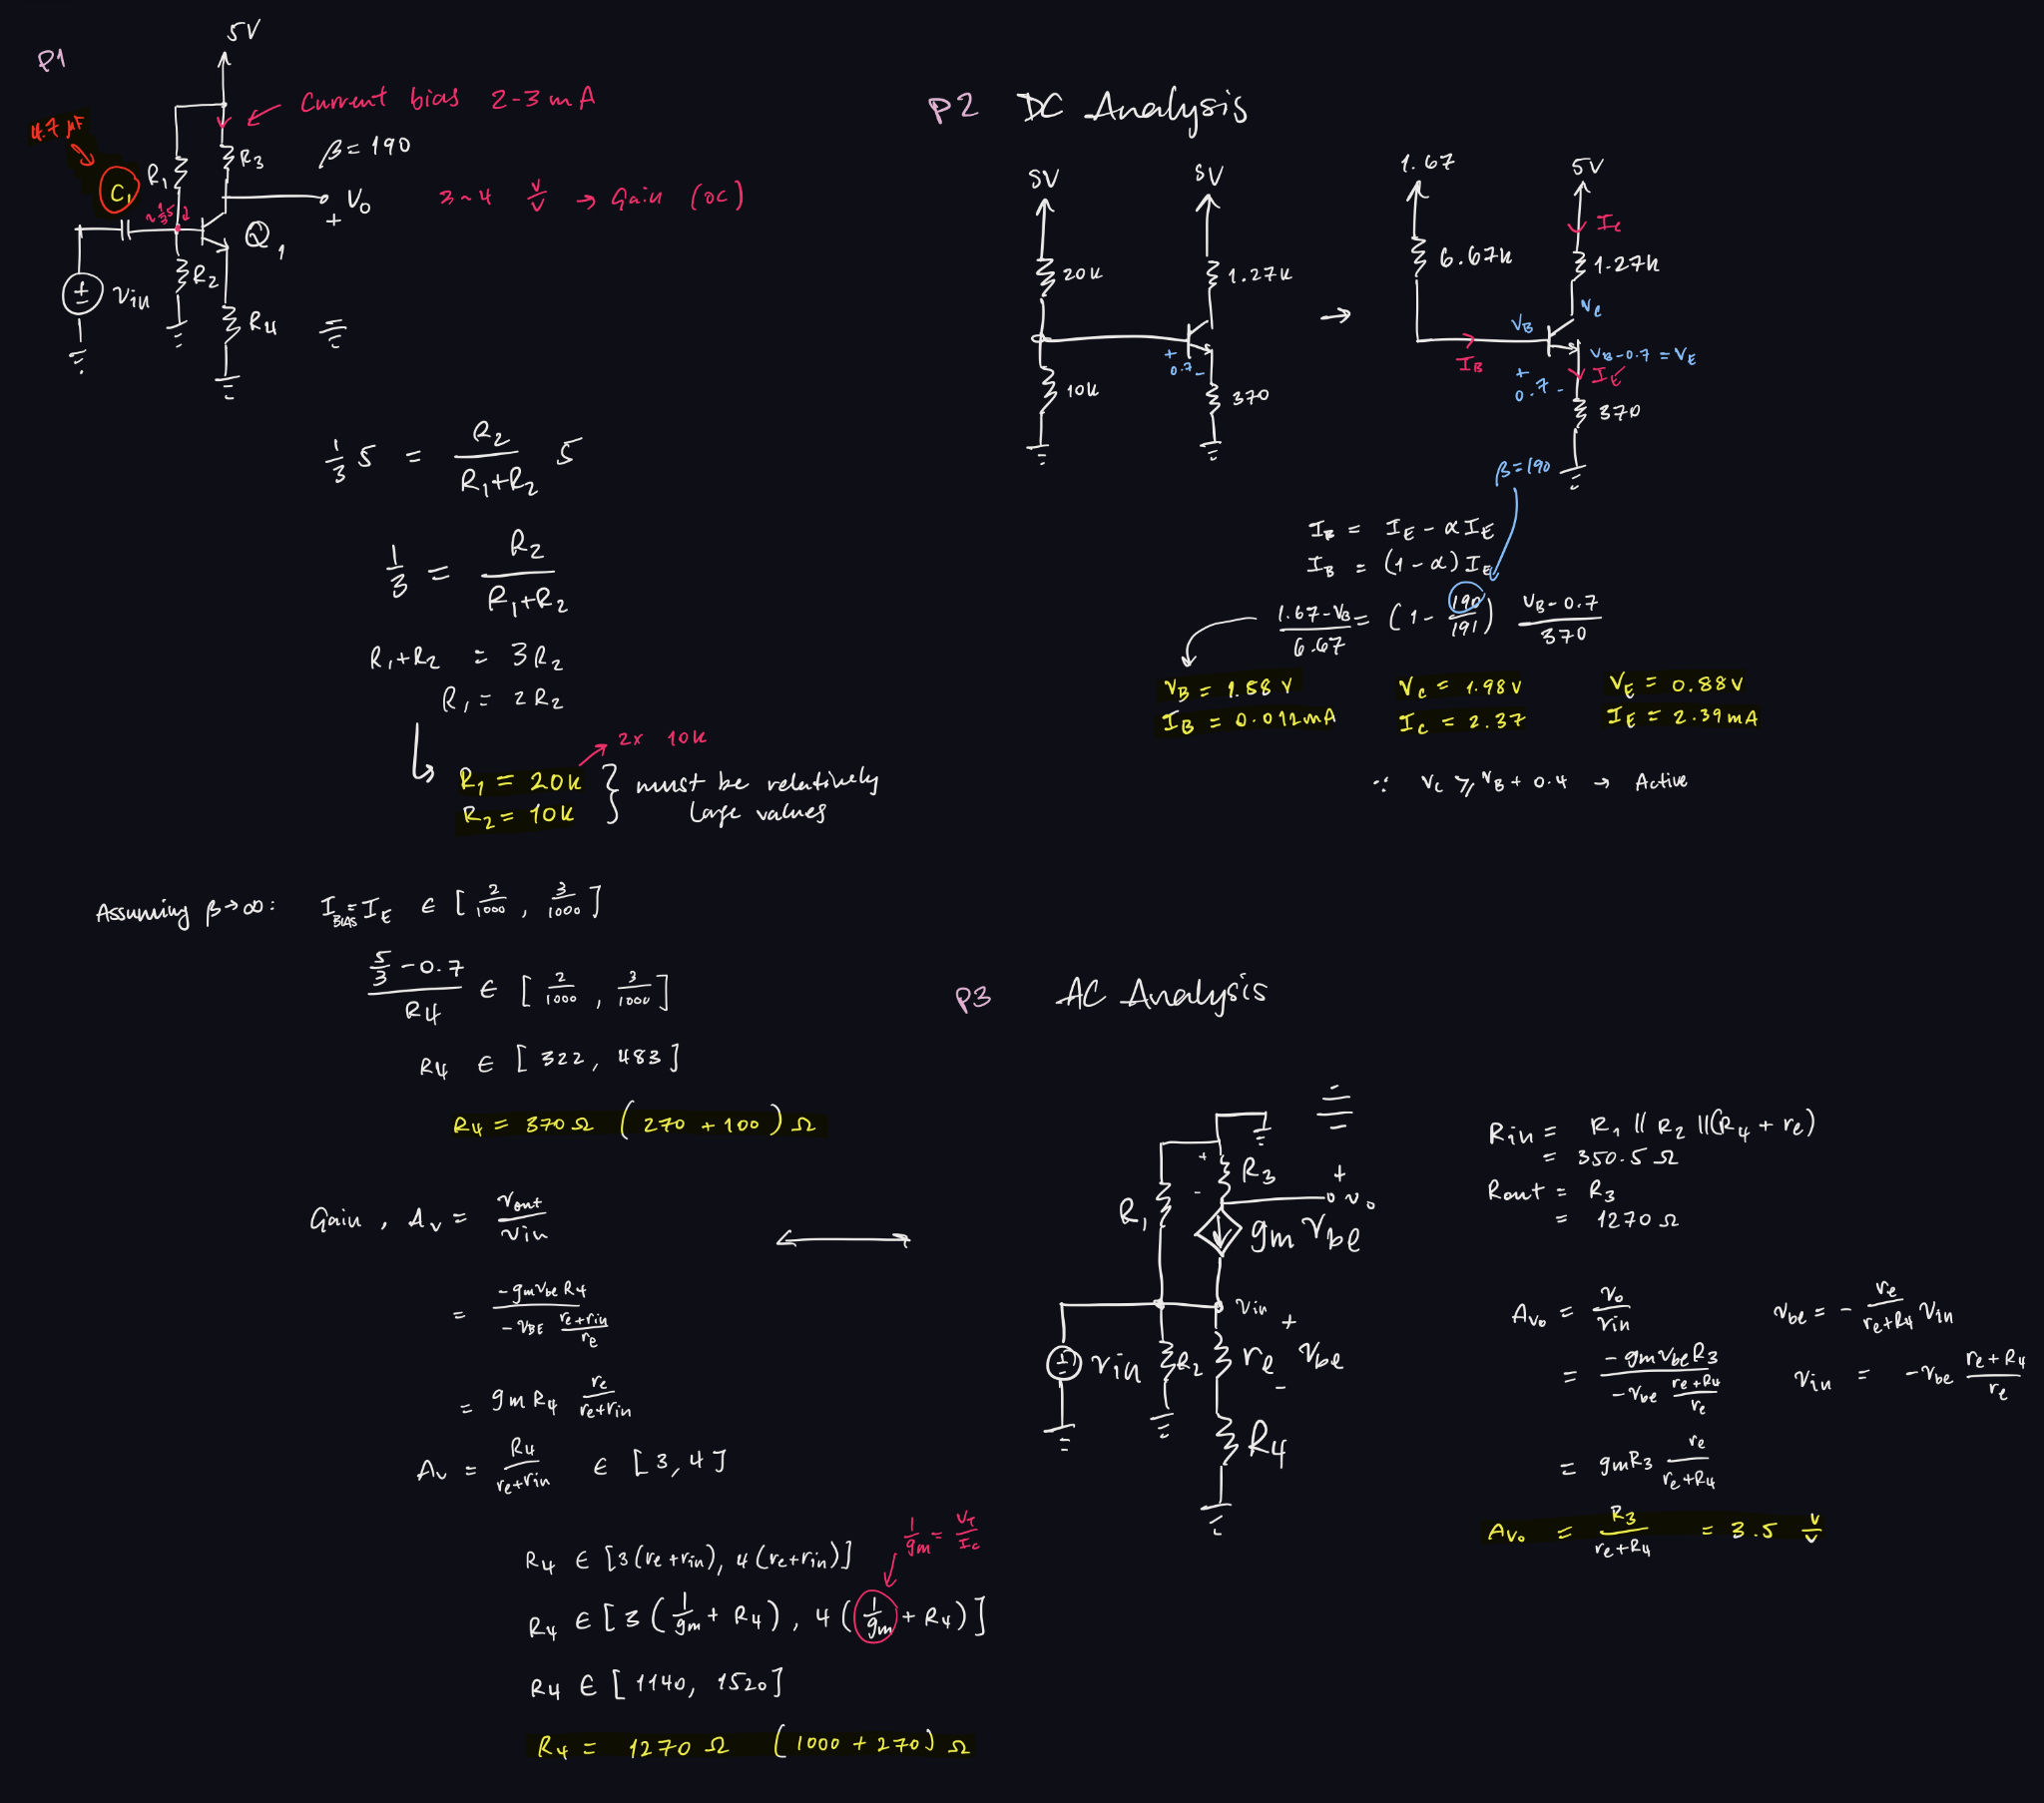 P1
5V
Current bias 2-3 mA
4.7 μF
R₃
β = 190
R₁
C₁
V₀
+
3~4 V/V → Gain (OC)
Q₁
R₂
Vin
R4
1/3 5 = R₂/(R₁+R₂) 5
1/3 = R₂/(R₁+R₂)
R₁+R₂ = 3R₂
R₁ = 2R₂
2x 10k
R₁ = 20k } must be relatively
R₂ = 10k } large values
Assuming β→∞: I_BIAS = I_E ∈ [2/1000, 3/1000]
(5/3 - 0.7)/R4 ∈ [2/1000, 3/1000]
R4 ∈ [322, 483]
R4 = 370Ω (270 + 100)Ω
Gain, Av = Vout/Vin
= (-gm vbe R4)/(-VBE (re+rin)/re)
= gm R4 re/(re+rin)
Av = R4/(re+rin) ∈ [3,4]
1/gm = VT/Ic
R4 ∈ [3(re+rin), 4(re+rin)]
R4 ∈ [3(1/gm + R4), 4(1/gm + R4)]
R4 ∈ [1140, 1520]
R4 = 1270Ω (1000 + 270)Ω
P2 DC Analysis
5V 5V
20k 1.27k
+ 0.7 -
10k 370
→
1.67 5V
Ic
6.67k 1.27k
VB Vc
IB VB-0.7 = VE
+ 0.7 - IE
370
β=190
IB = IE - αIE
IB = (1-α)IE
(1.67-VB)/6.67 = (1 - 190/191) (VB-0.7)/370
VB = 1.58 V Vc = 1.98V VE = 0.88V
IB = 0.012mA Ic = 2.37 IE = 2.39mA
∵ Vc ≥ VB + 0.4 → Active
P3 AC Analysis
+ R₃ +
- v₀
R₁
gm Vbe
Vin +
Vin R₂ re Vbe
-
R4
Rin = R₁ || R₂ ||(R4 + re)
= 350.5Ω
Rout = R₃
= 1270Ω
Avo = vo/vin vbe = - re/(re+R4) Vin
= (-gm vbe R3)/(-vbe (re+R4)/re) vin = -vbe (re+R4)/re
= gmR3 re/(re+R4)
Avo = R3/(re+R4) = 3.5 V/V